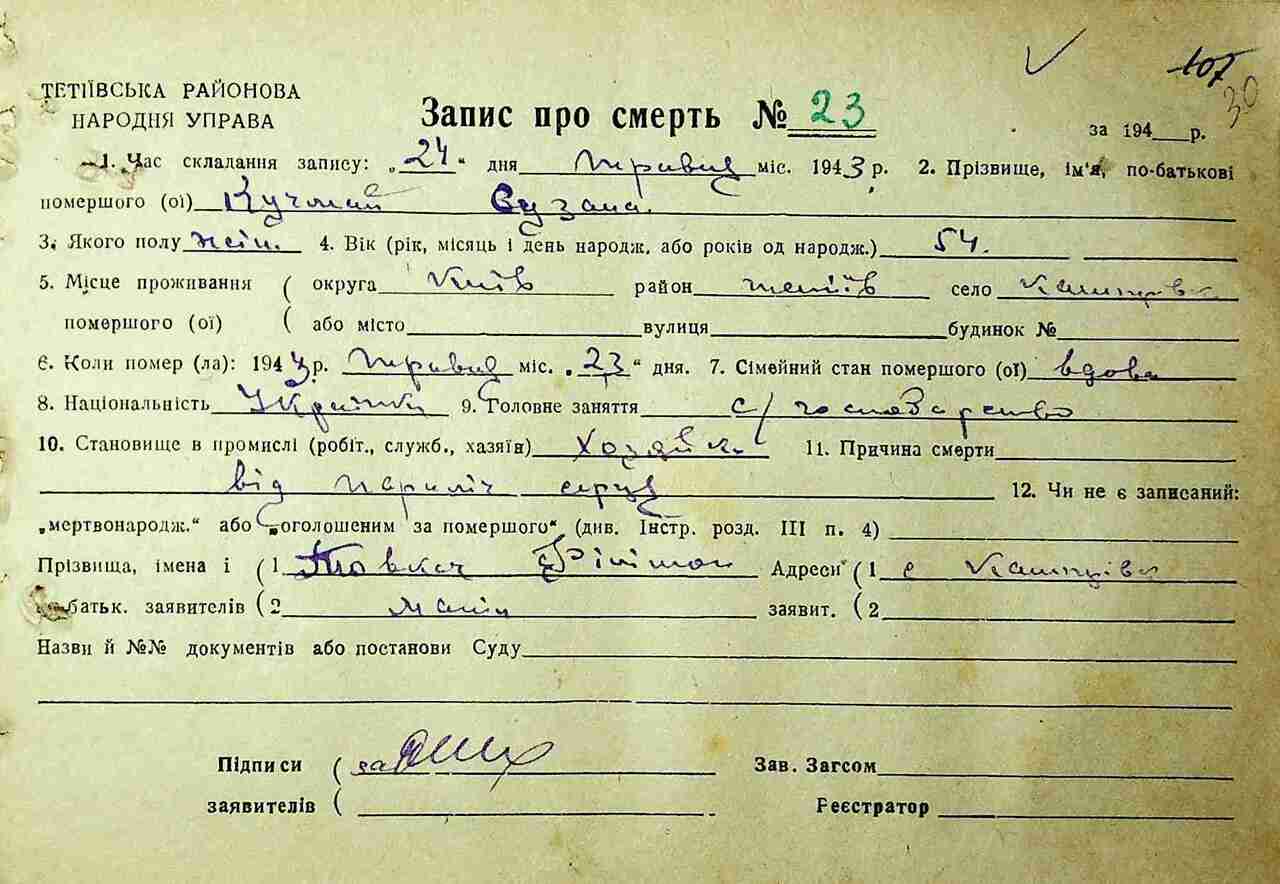 107
30
ТЕТІЇВСЬКА РАЙОНОВА
НАРОДНЯ УПРАВА
Запис про смерть № 23
за 194 р.
1. Час складання запису: „24“ дня травня міс. 1943 р. 2. Прізвище, ім'я, по-батькові
помершого (ої) Сузана
3. Якого полу жін. 4. Вік (рік, місяць і день народж. або років од народж.) 54.
5. Місце проживання ( округа Київ район Тетіїв село
помершого (ої) ( або місто вулиця будинок №
6. Коли помер (ла): 1943 р. травня міс. „23“ дня. 7. Сімейний стан помершого (ої) вдова
8. Національність Українка 9. Головне заняття с/господарство
10. Становище в промислі (робіт., служб., хазяїн) Хозяйка 11. Причина смерти
від параліч серця 12. Чи не є записаний:
„мертвонародж.“ або „оголошеним за помершого“ (див. Інстр. розд. III п. 4)
Прізвища, імена і (1 Товкач Адреси (1 с
по батьк. заявителів (2 заявит. (2
Назви й №№ документів або постанови Суду
Підписи ( за Зав. Загсом
заявителів ( Реєстратор